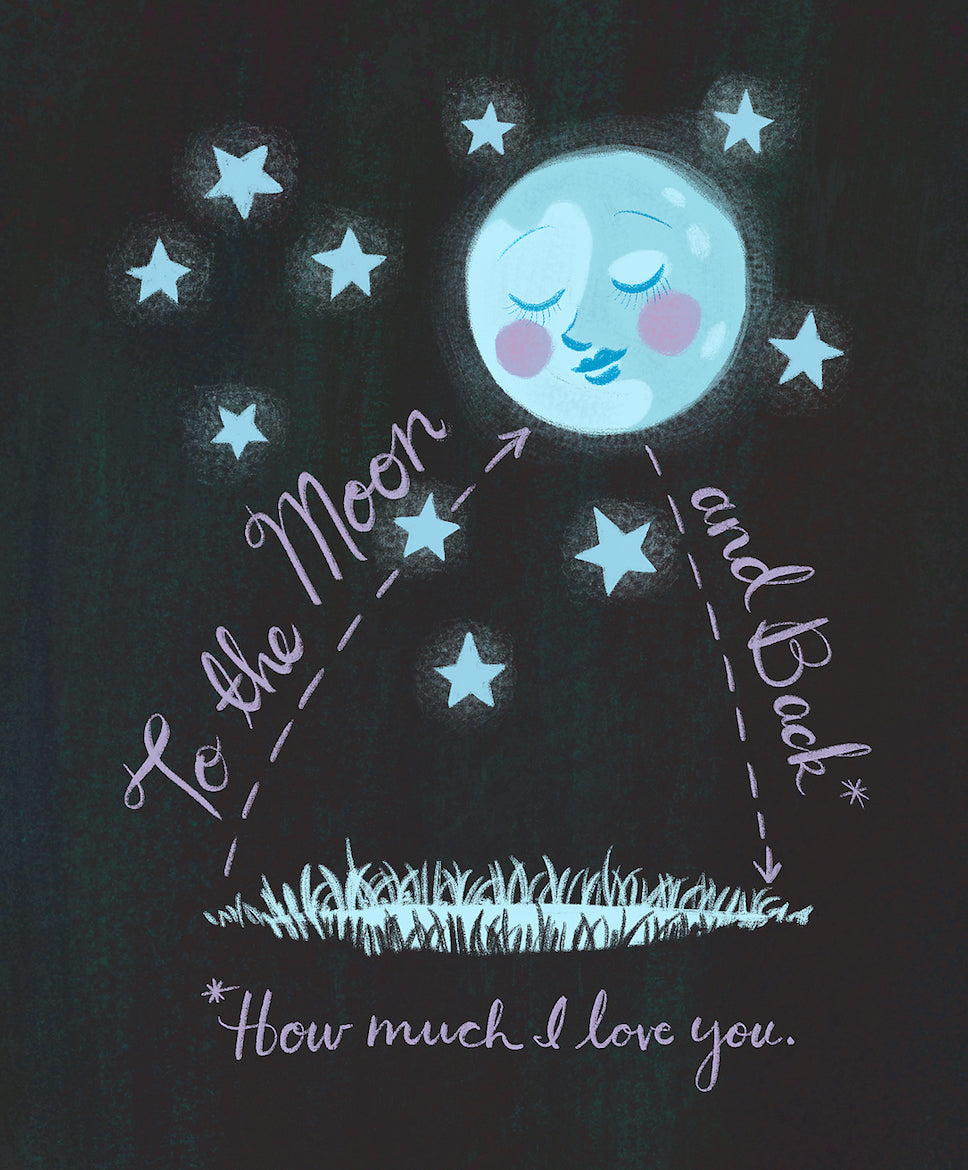 To the Moon
and Back*
*How much I love you.